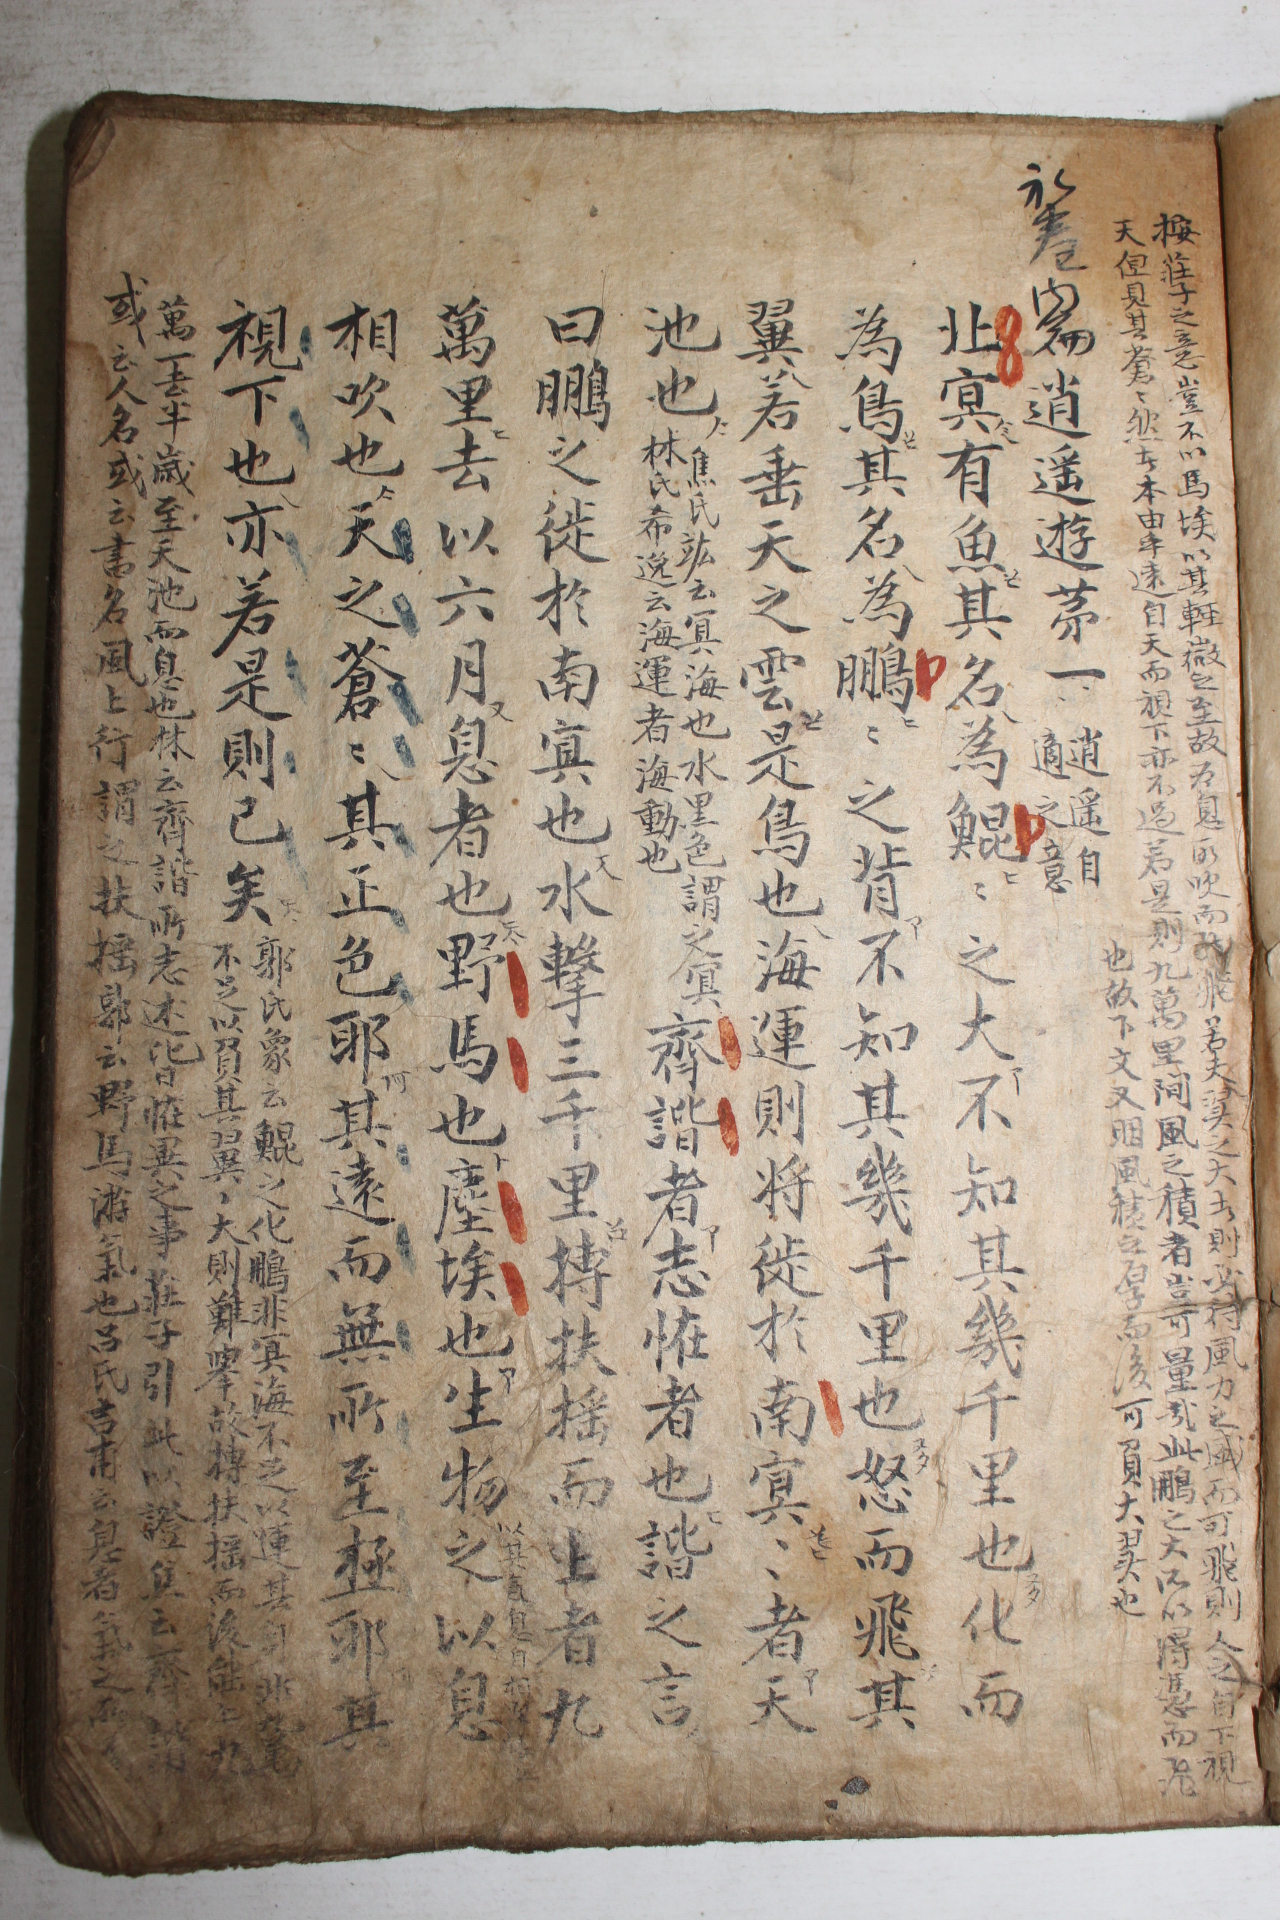 按莊子之意豈不以馬埃以其輕微之至故為息所吹而能飛若夫溟之大者則必待風力之盛而可飛則人之自下視
天但見其蒼〻然者本由乎遠自天而視下亦不過若是則九萬里間風之積者豈可量哉此鵬之大所以得憑而飛
也故下文又明風積之厚而後可負大翼也
內篇逍遥遊第一
逍遥自
適之意
北冥有魚其名為鯤〻之大不知其幾千里也化而
為鳥其名為鵬〻之背不知其幾千里也怒而飛其
翼若垂天之雲是鳥也海運則將徙於南冥〻者天
池也
焦氏竑云冥海也水黑色謂之冥
林氏希逸云海運者海動也
齊諧者志恠者也諧之言
曰鵬之徙於南冥也水擊三千里摶扶摇而上者九
萬里去以六月息者也野馬也塵埃也生物之以息
相吹也天之蒼〻其正色耶其遠而無所至極耶其
視下也亦若是則已矣
郭氏象云鯤之化鵬非冥海不足以運其身非九萬
不足以負其翼〻大則難擧故摶扶摇而後能上九
萬一去半歲至天池而息也林云齊諧所志述皆恠異之事莊子引此以證焦云齊諧
或云人名或云書名風上行謂之扶摇郭云野馬游氣也呂氏吉甫云息者氣之所